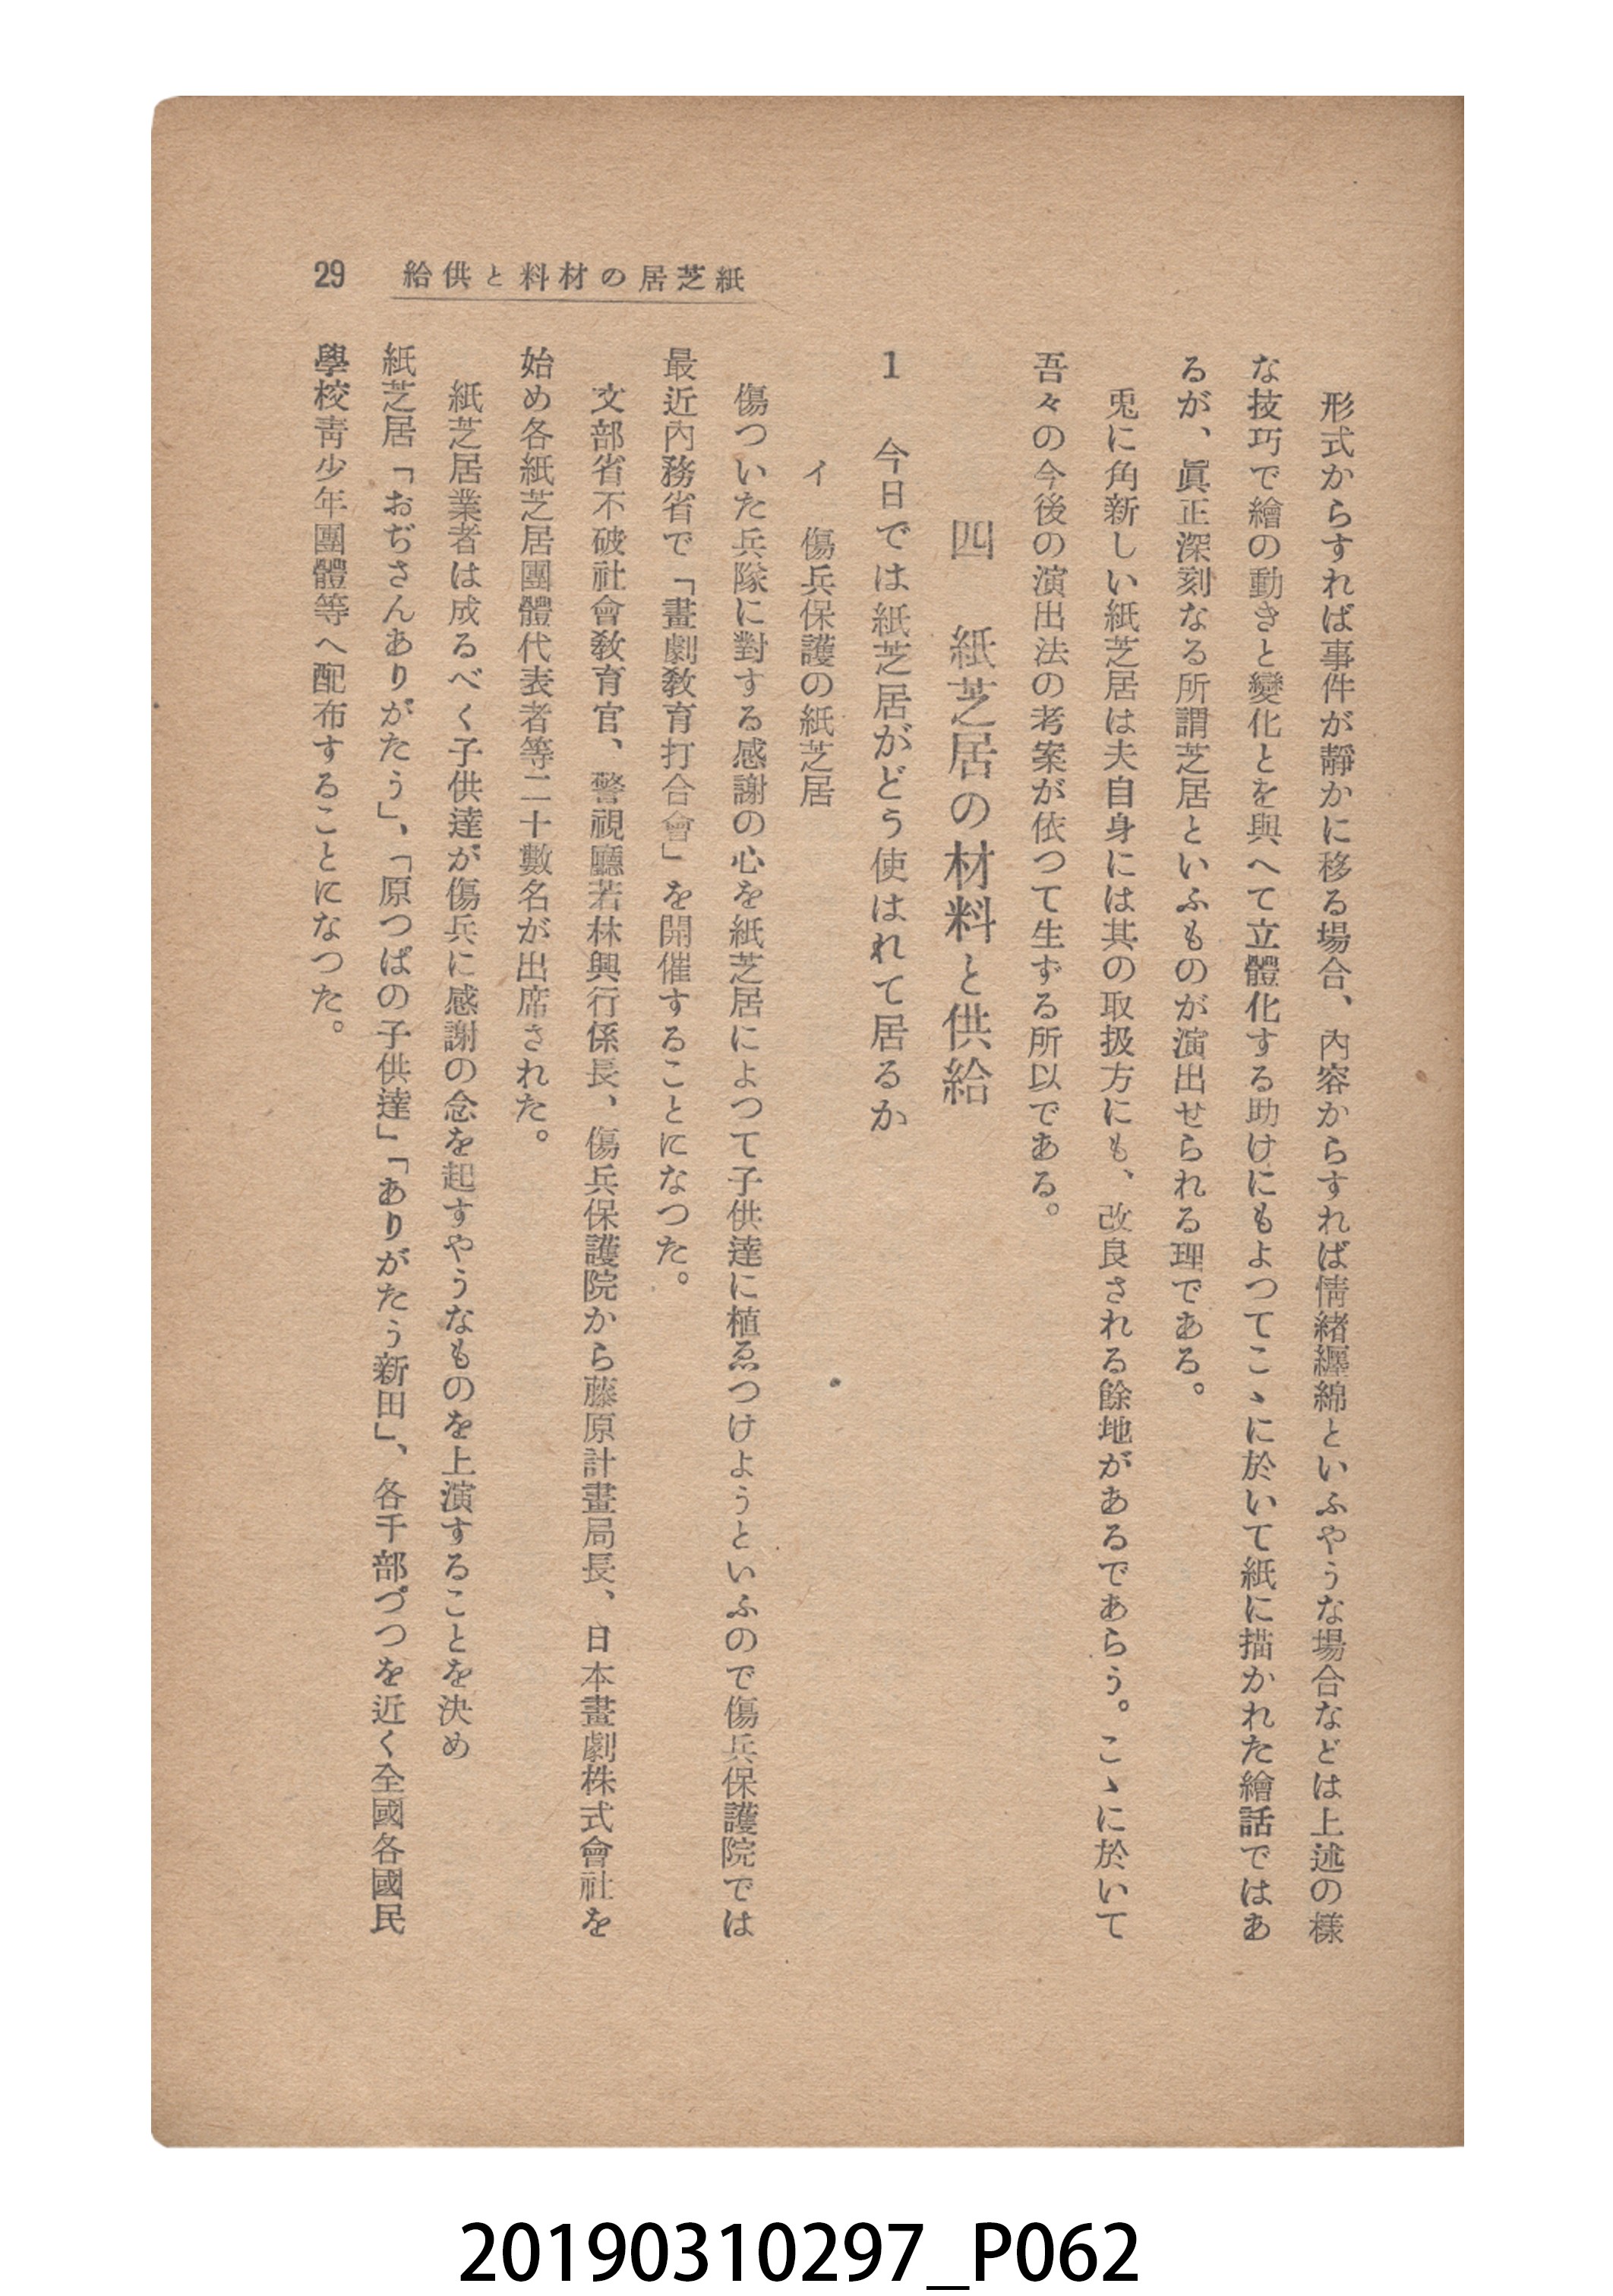 29 給供と料材の居芝紙
形式からすれば事件が靜かに移る場合、內容からすれば情緒纒綿といふやうな場合などは上述の樣
な技巧で繪の動きと變化とを與へて立體化する助けにもよつてこゝに於いて紙に描かれた繪話ではあ
るが、眞正深刻なる所謂芝居といふものが演出せられる理である。
兎に角新しい紙芝居は夫自身には其の取扱方にも、改良される餘地があるであらう。こゝに於いて
吾々の今後の演出法の考案が依つて生ずる所以である。
四 紙芝居の材料と供給
1 今日では紙芝居がどう使はれて居るか
イ 傷兵保護の紙芝居
傷ついた兵隊に對する感謝の心を紙芝居によつて子供達に植ゑつけようといふので傷兵保護院では
最近內務省で「畫劇敎育打合會」を開催することになつた。
文部省不破社會敎育官、警視廳若林興行係長、傷兵保護院から藤原計畫局長、日本畫劇株式會社を
始め各紙芝居團體代表者等二十數名が出席された。
紙芝居業者は成るべく子供達が傷兵に感謝の念を起すやうなものを上演することを決め
紙芝居「おぢさんありがたう」、「原つぱの子供達」「ありがたう新田」、各千部づつを近く全國各國民
學校靑少年團體等へ配布することになつた。
20190310297_P062